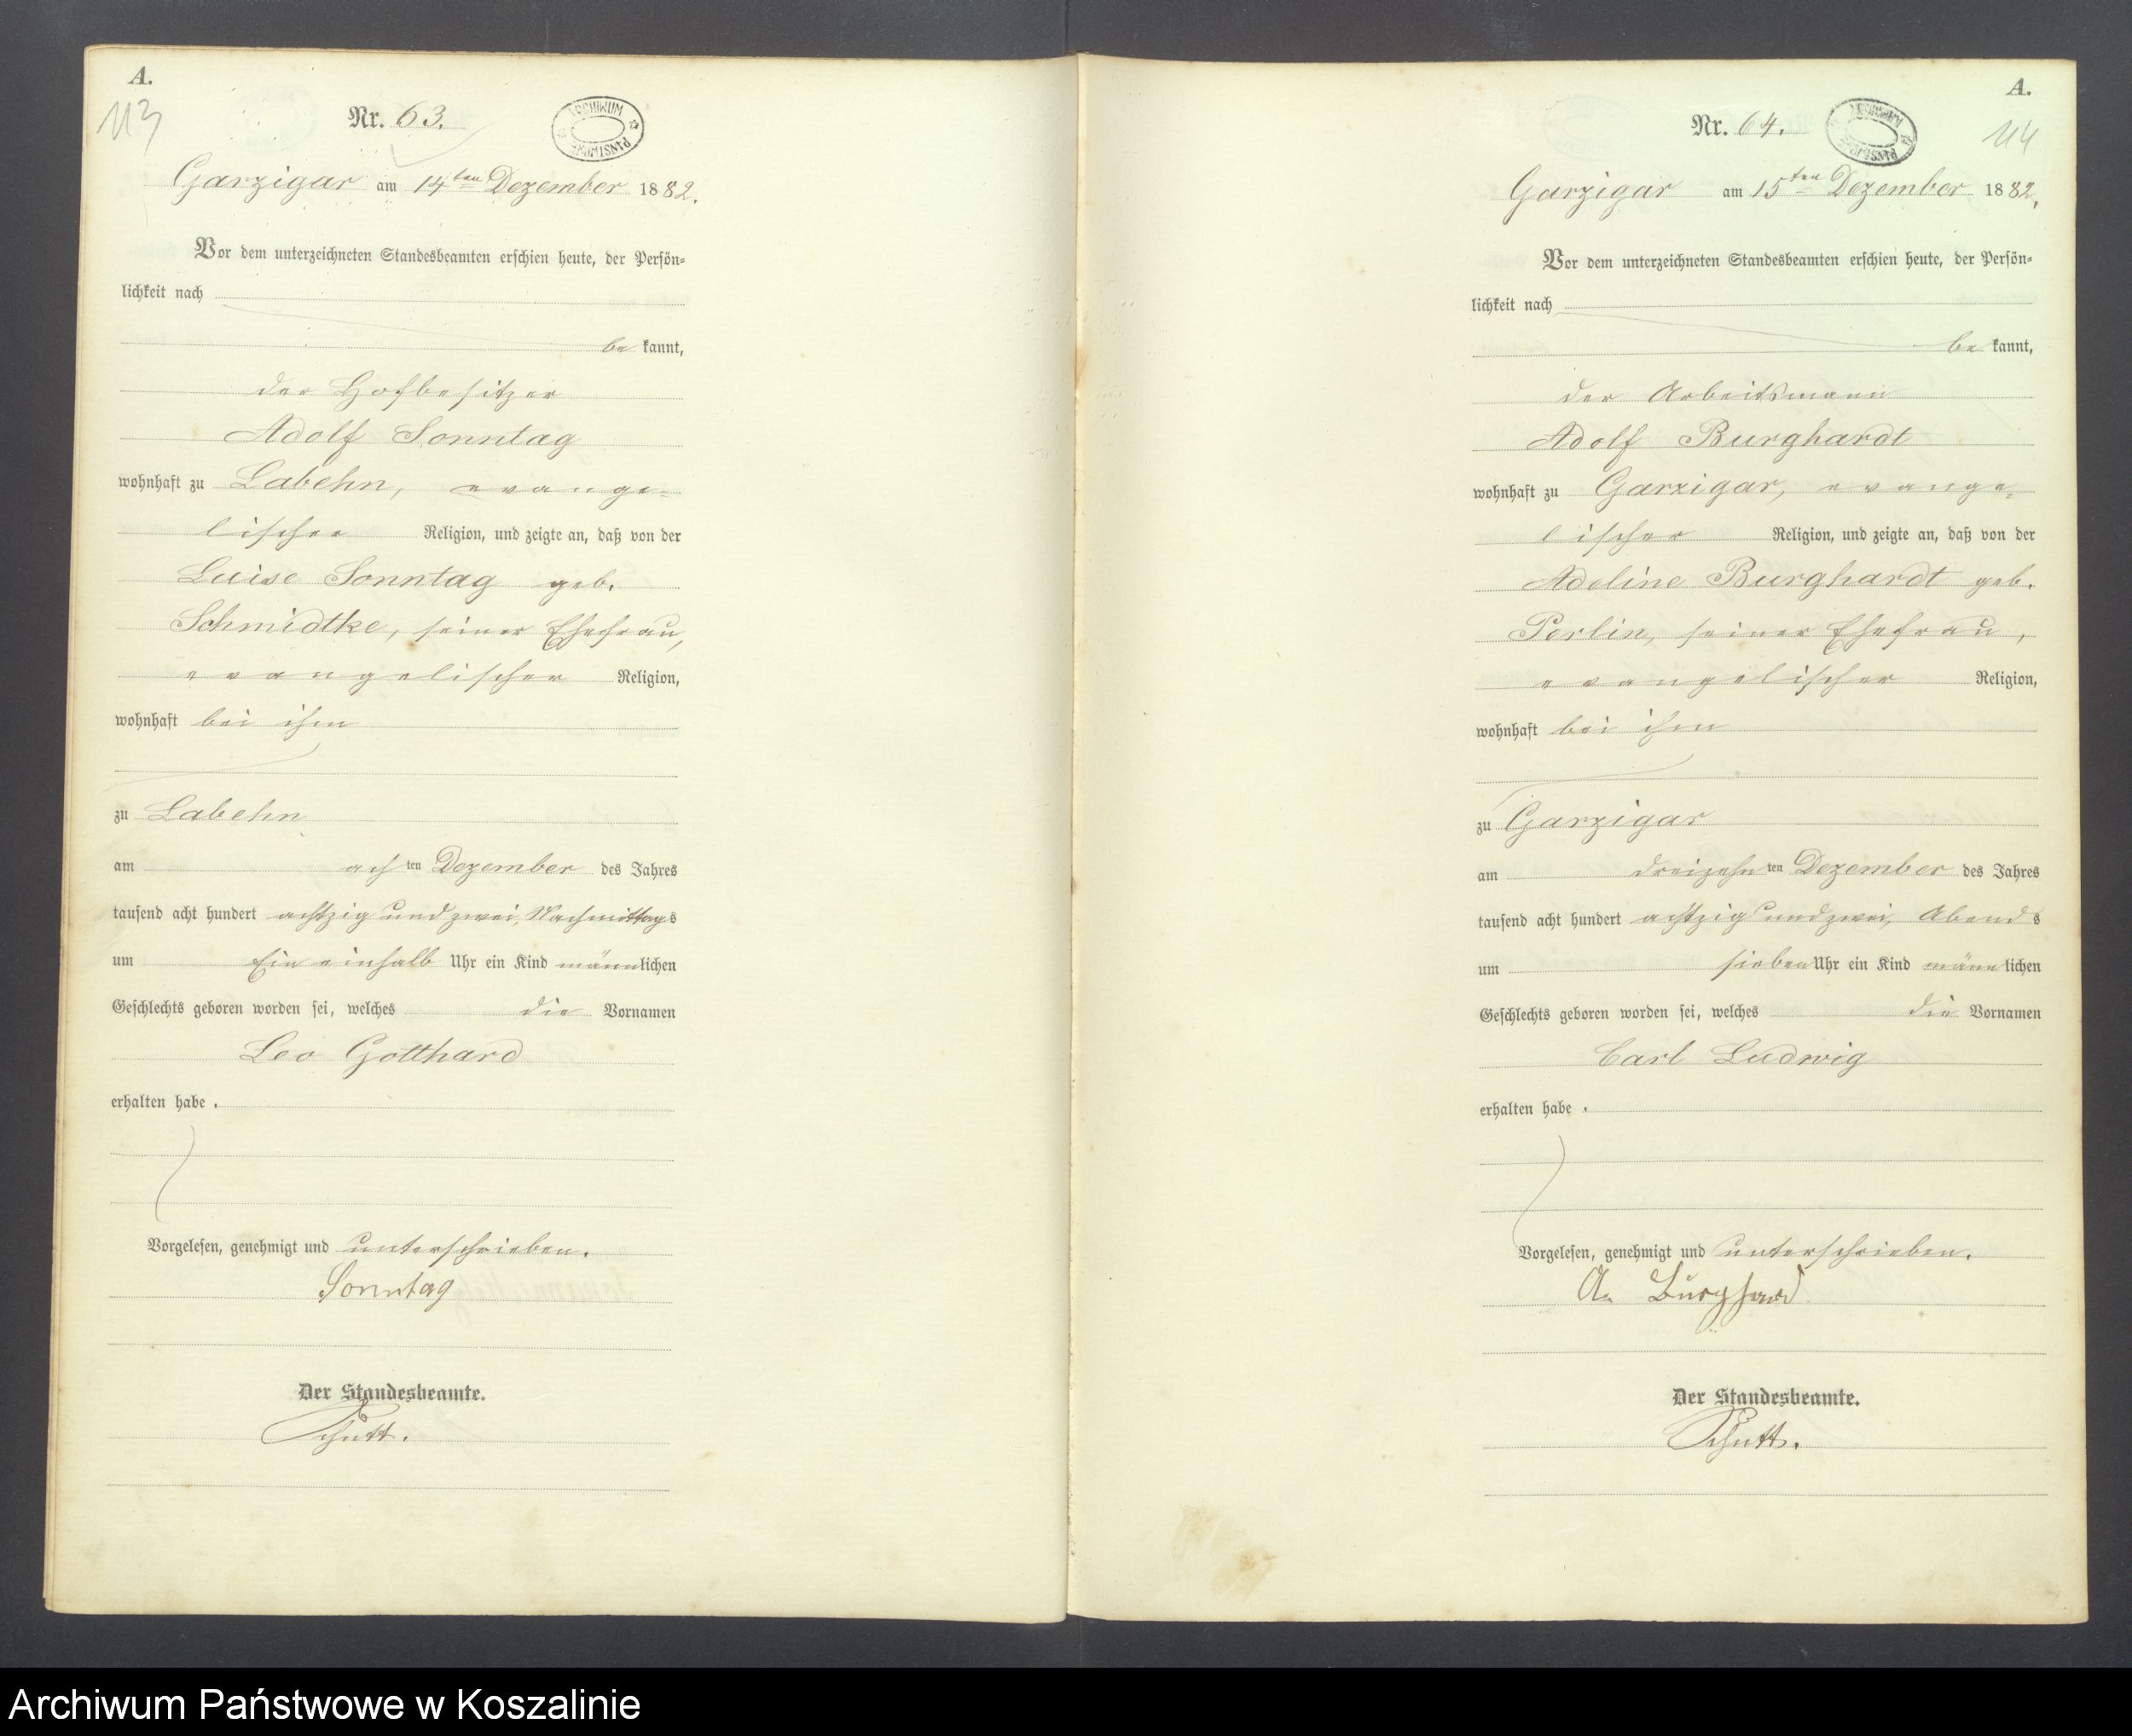 A.
113
Nr. 63.
ARCHIWUM PAŃSTWOWE
Garzigar am 14ten Dezember 1882.
Vor dem unterzeichneten Standesbeamten erschien heute, der Persön-
lichkeit nach
be kannt,
der Hofbesitzer
Adolf Sonntag
wohnhaft zu Labehn, evange-
lischer Religion, und zeigte an, daß von der
Luise Sonntag geb.
Schmidtke, seiner Ehefrau,
evangelischer Religion,
wohnhaft bei ihm
zu Labehn
am ach ten Dezember des Jahres
tausend acht hundert achtzig und zwei, Nachmittags
um Ein einhalb Uhr ein Kind männlichen
Geschlechts geboren worden sei, welches die Vornamen
Leo Gotthard
erhalten habe.
Vorgelesen, genehmigt und unterschrieben.
Sonntag
Der Standesbeamte.
Schutt.
A.
114
Nr. 64.
ARCHIWUM PAŃSTWOWE
Garzigar am 15ten Dezember 1882,
Vor dem unterzeichneten Standesbeamten erschien heute, der Persön-
lichkeit nach
be kannt,
der Arbeitsmann
Adolf Burghardt
wohnhaft zu Garzigar, evange-
lischer Religion, und zeigte an, daß von der
Adeline Burghardt geb.
Perlin, seiner Ehefrau,
evangelischer Religion,
wohnhaft bei ihm
zu Garzigar
am dreizehn ten Dezember des Jahres
tausend acht hundert achtzig und zwei, Abends
um sieben Uhr ein Kind männlichen
Geschlechts geboren worden sei, welches die Vornamen
Carl Ludwig
erhalten habe.
Vorgelesen, genehmigt und unterschrieben.
A. Burghard
Der Standesbeamte.
Schutt.
Archiwum Państwowe w Koszalinie